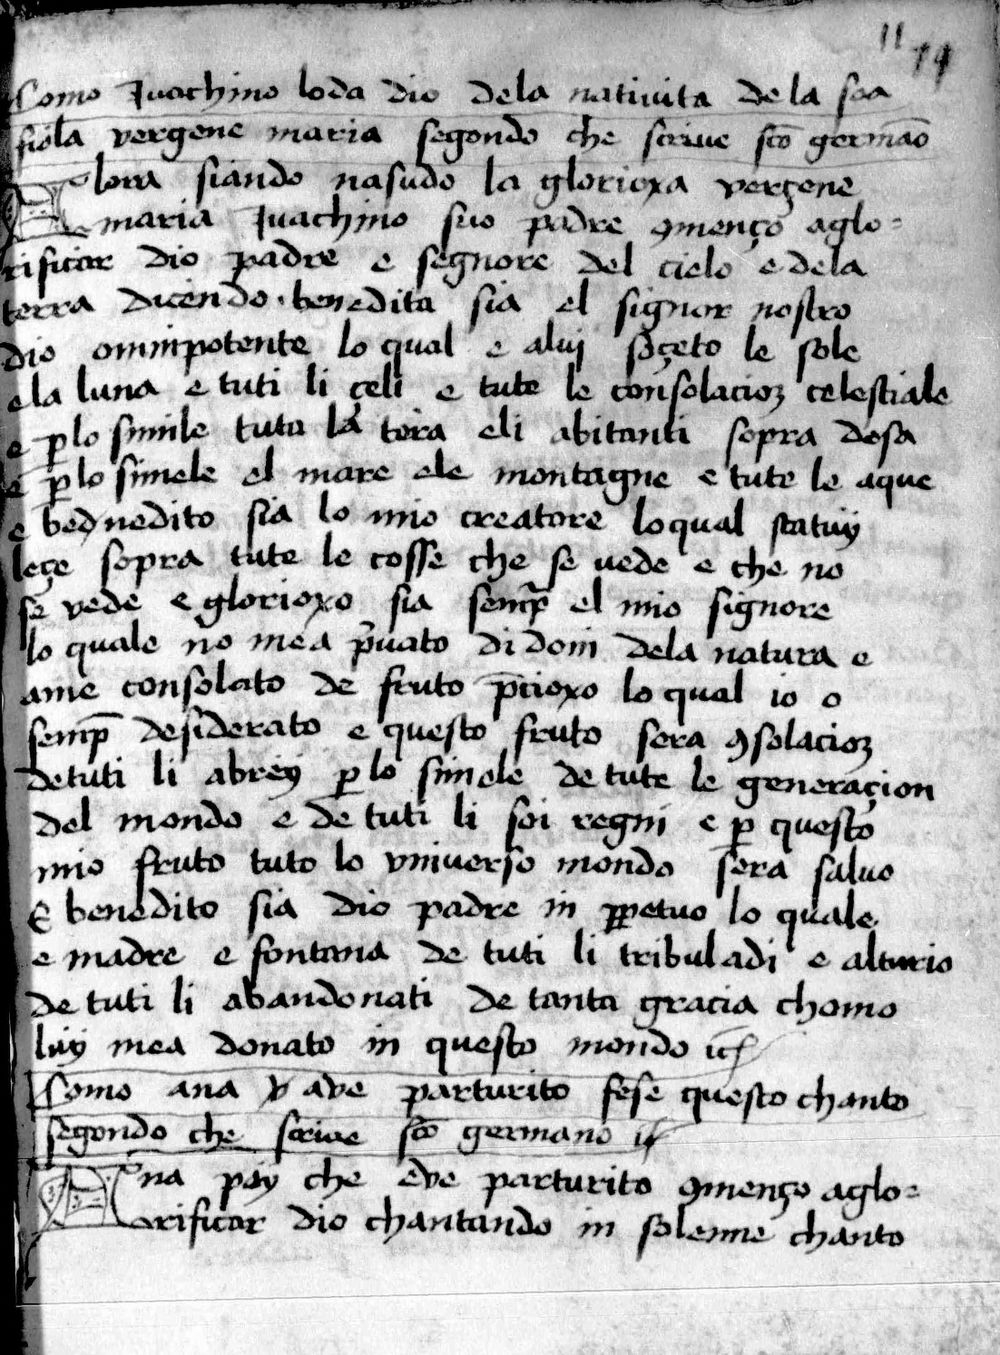 11 14
Como Juachino loda dio dela nativita de la soa
fiola vergene maria segondo che scrive sc̄o germāo
Alora siando nasudo la glorioxa verçene
maria Juachino suo padre ꝯmenço aglo-
rificar dio padre e segnore del cielo e dela
terra dicendo · benedita sia el signor nostro
dio omnipotente lo qual e aluj soçeto le sole
ela luna e tuti li çeli e tute le consolacioꝫ celestiale
e ꝑ lo simile tuta la tera eli abitanti sopra desa
e ꝑ lo simele el mare ele montagne e tute le aque
e bednedito sia lo mio creatore loqual statuy
leçe sopra tute le cosse che se vede e che no
se vede e glorioxo sia semp̄ el mio signore
lo quale no mea p̄vato di doni dela natura e
ame consolato de fruto p̄cioxo lo qual io o
semp̄ desiderato e questo fruto sera ꝯsolacioꝫ
detuti li abrey ꝑ lo simele de tute le generaçion
del mondo e de tuti li soi regni e ꝑ questo
mio fruto tuto lo vniverso mondo sera salvo
E benedito sia dio padre in ꝑpetuo lo quale
e madre e fontana de tuti li tribuladi e alturio
de tuti li abandonati de tanta gracia chomo
luy mea donato in questo mondo
Como ana ave parturito fese questo chanto
segondo che scrive sc̄o germano
Ana poy che eve parturito ꝯmenço aglo-
rificar dio chantando in solenne chanto